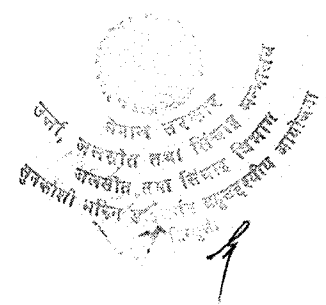 नेपाल सरकार
उर्जा, जलस्रोत तथा सिंचाइ मन्त्रालय
जलस्रोत तथा सिंचाइ विभाग
सुनकोशी मरिन डाइभर्सन बहुउद्देश्यीय आयोजना